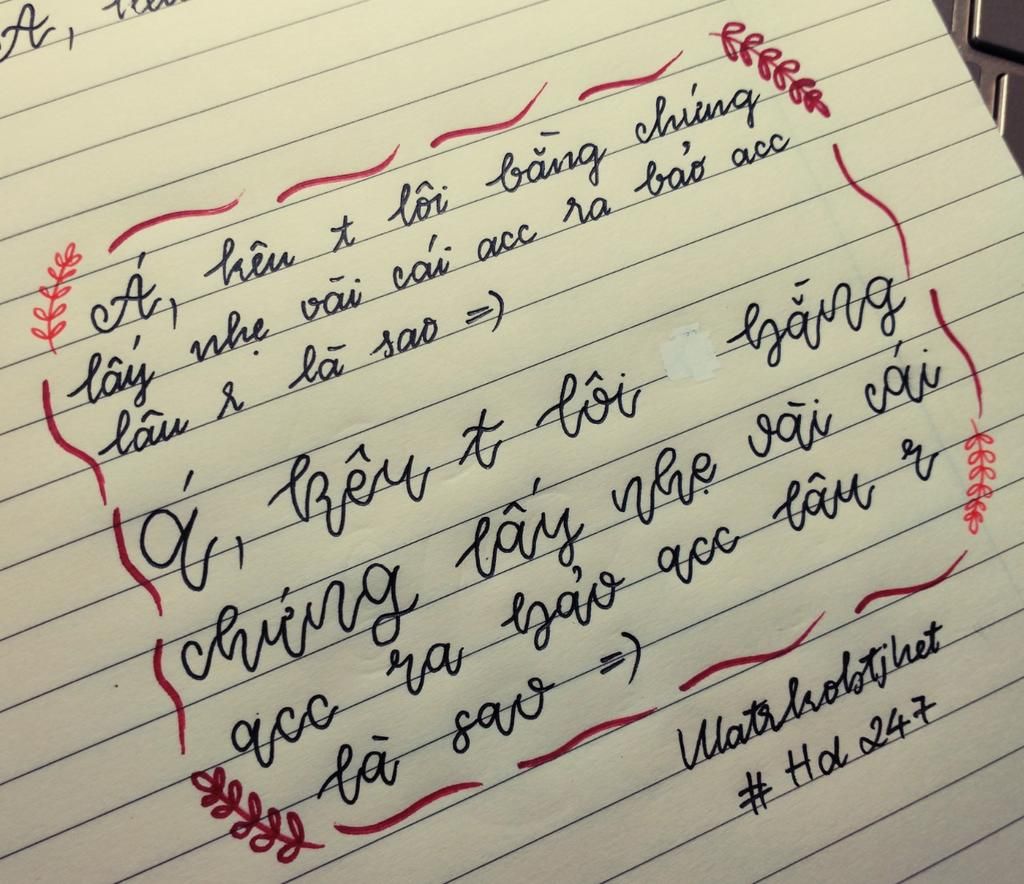 Á, kêu t lôi bằng chứng
lấy nhẹ vài cái acc ra bảo acc
lâu r là sao =)
Á, kêu t lôi bằng
chứng lấy nhẹ vài cái
acc ra bảo acc lâu r
là sao =)
# Hd 247